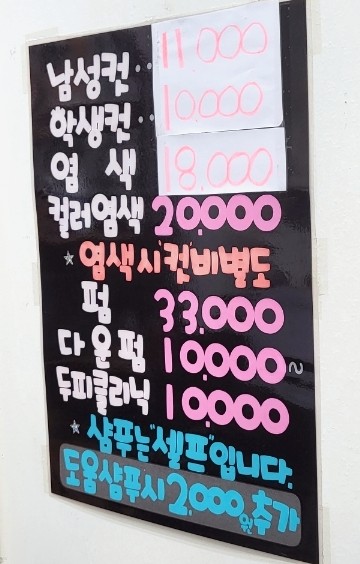 남성컷‥11000
학생컷‥10,000
염 색 18,000
컬러염색 20,000
★ 염색시"컷"비별도
펌 33,000
다운펌 10,000~
두피클리닉 10,000
★ 샴푸는"셀프"입니다.
도움샴푸시 2,000원추가